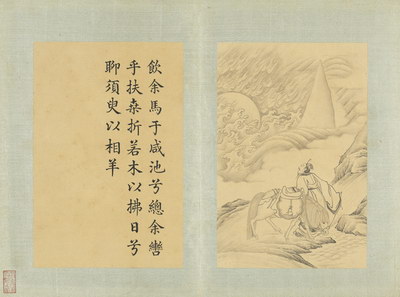 飲余馬于咸池兮總余轡
乎扶桒折若木以拂日兮
聊須臾以相羊